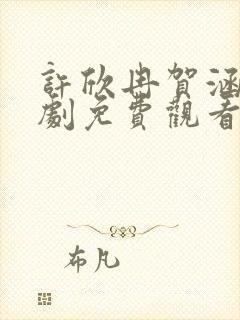 許欣冉賀涵
劇免費觀看
布凡